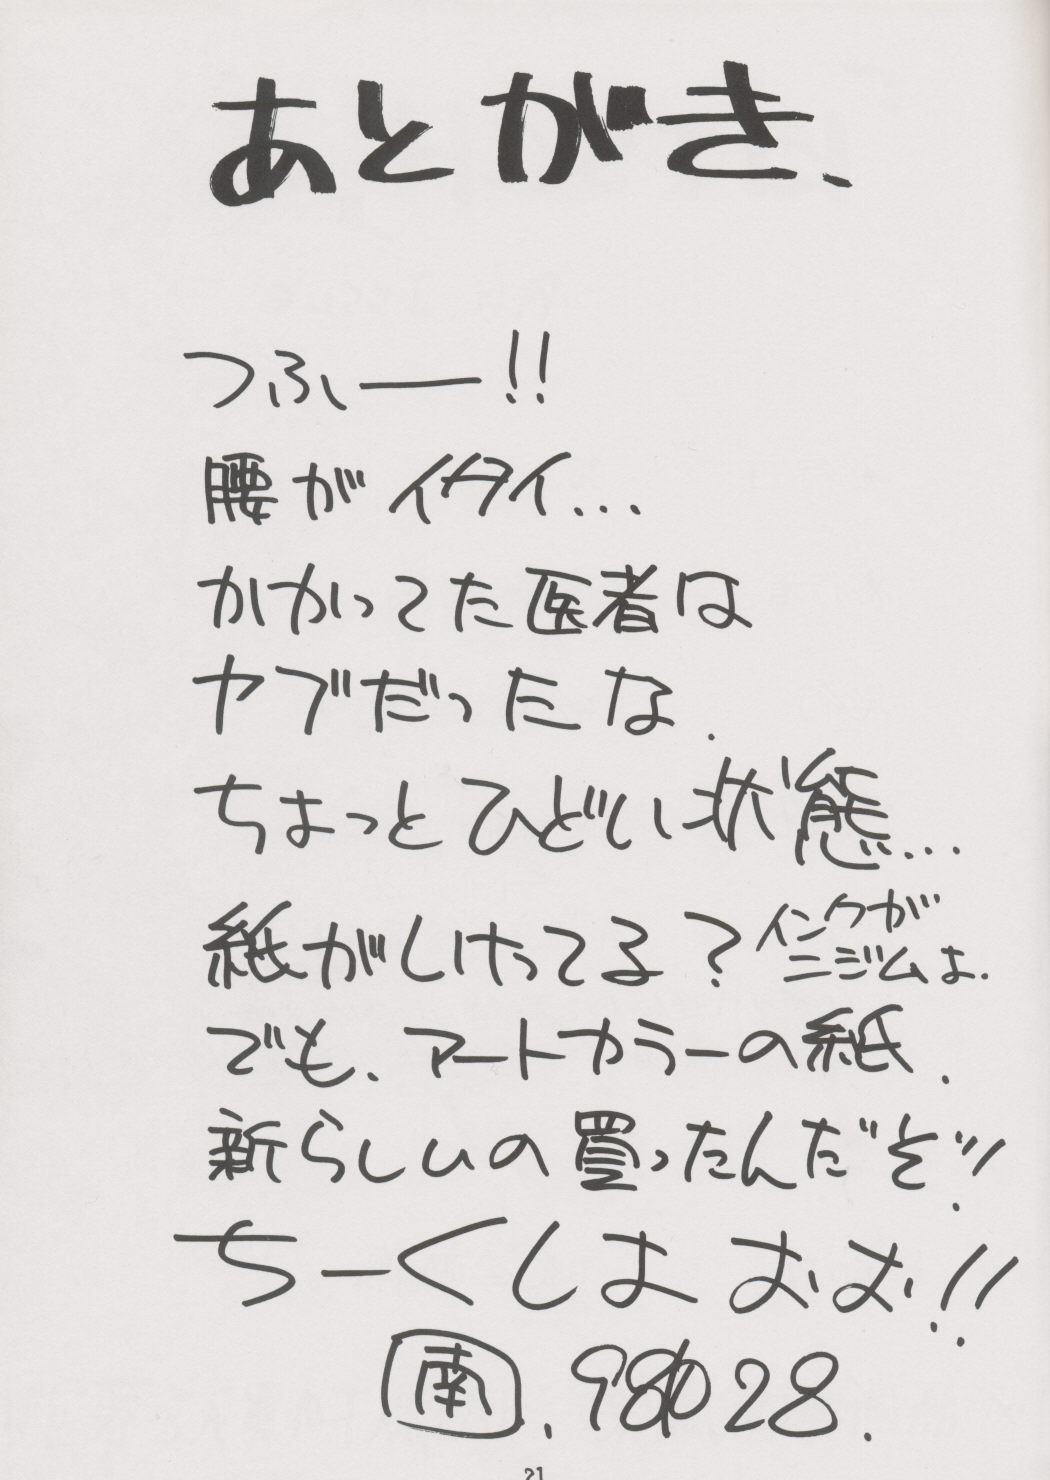 あとがき、
つふぅー!!
腰がイタイ...
かかってた医者は
ヤブだったな.
ちょっとひどい状態...
紙がしけってる?インクが
ニジムよ.
でも、アートカラーの紙.
新らしいの買ったんだぞッ!
ちーくしょおお!!
南. 28.
21